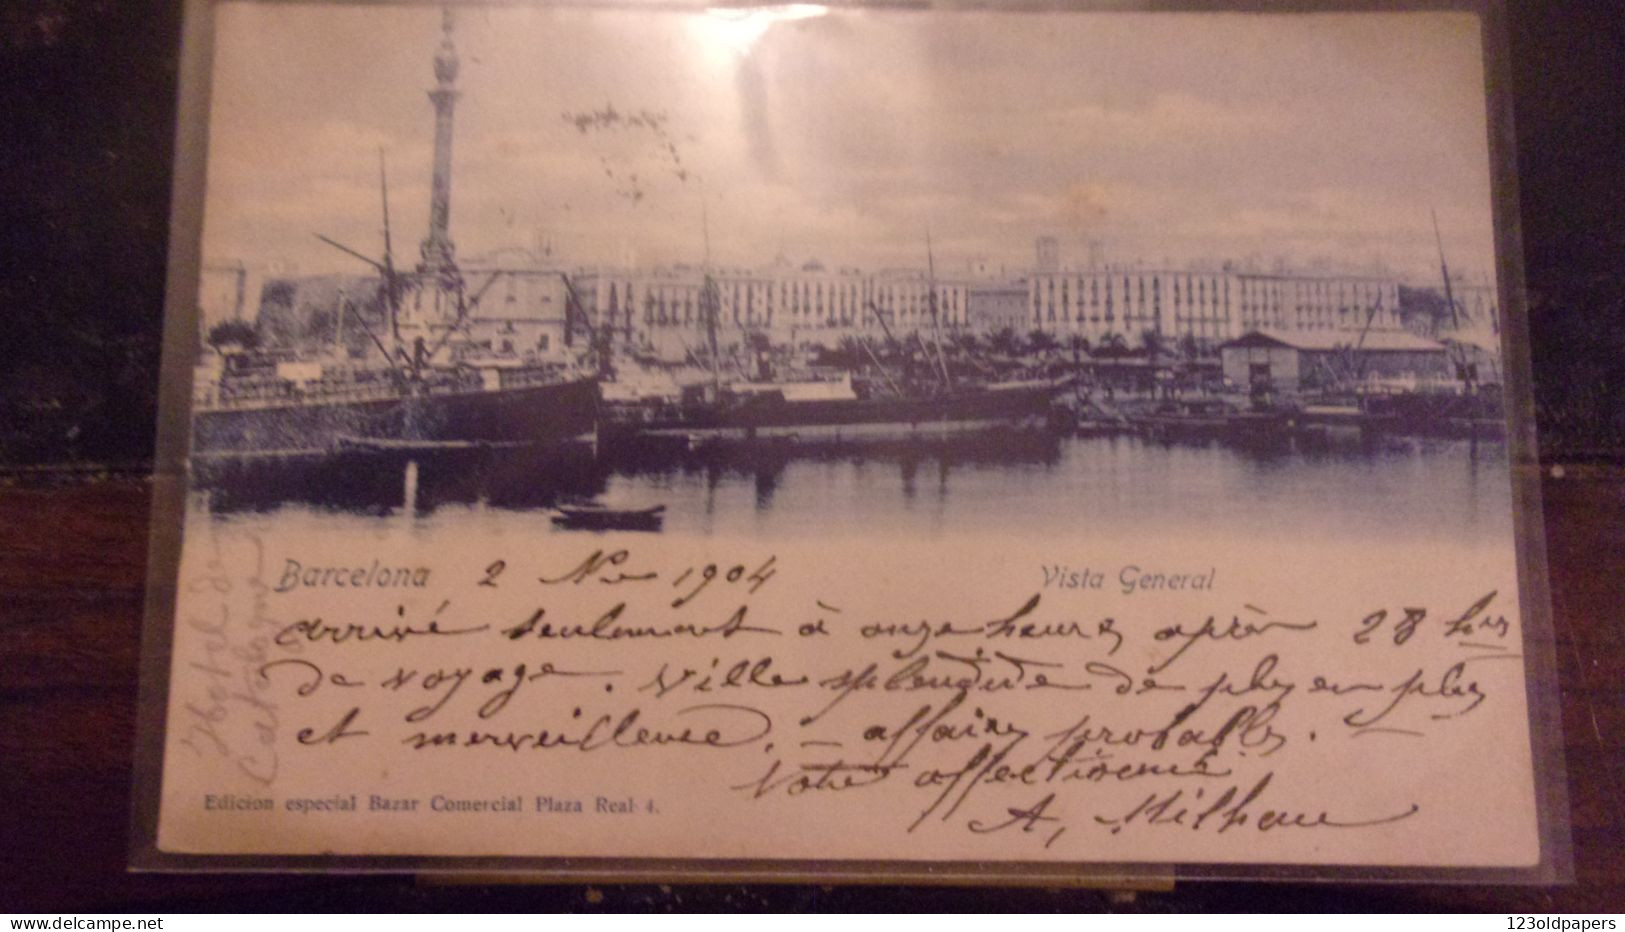 Barcelona 2 Nre 1904 Vista General
arrivé seulement à onze heures après 28 hrs
de voyage. Ville splendide de plus en plus
et merveilleuse. — affaires probables.
Votre affectionné
A. Milhau
Hotel de
Catalogne
Edicion especial Bazar Comercial Plaza Real 4.
123oldpapers